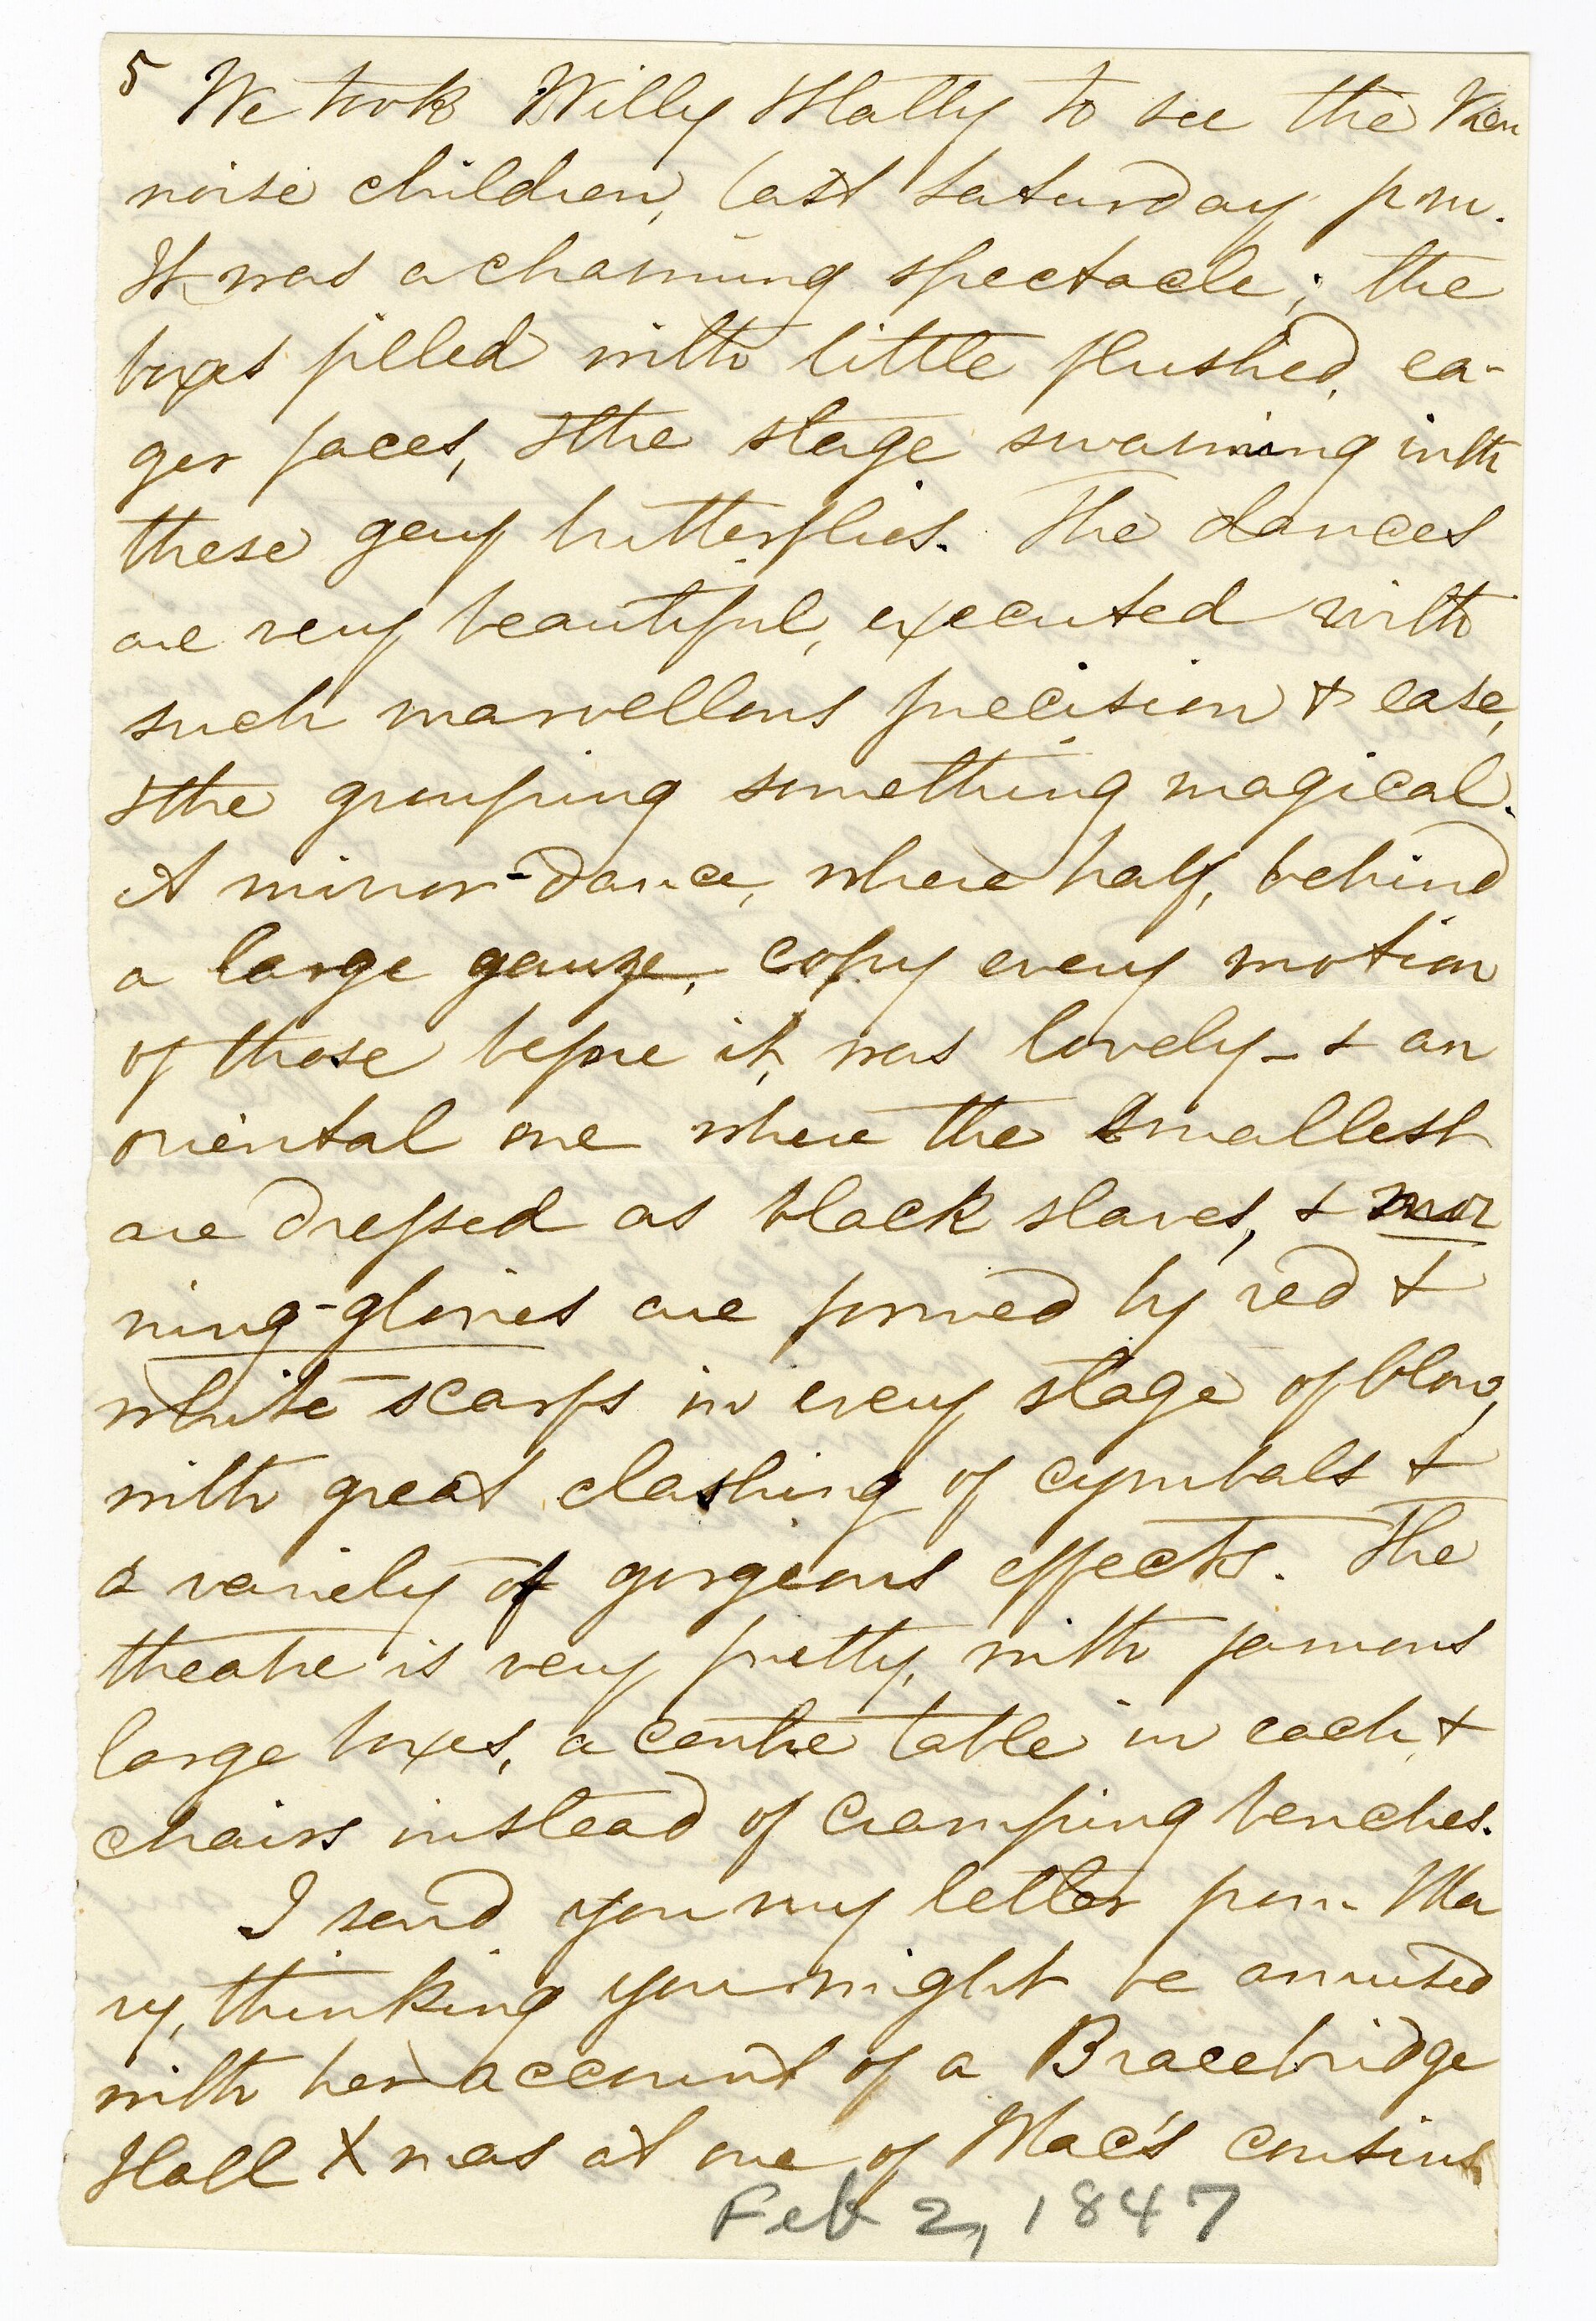 5 We took Willy & Hatty to see the Vien
noise children, last Saturday p.m.
It was a charming spectacle; the
boxes filled with little flushed, ea-
ger faces, & the stage swarming with
these gay butterflies. The dances
are very beautiful, executed with
such marvellous precision & ease,
& the grouping something magical.
A mirror-dance, where half, behind
a large gauze, copy every motion
of those before it, was lovely - & an
oriental one where the smallest
are dressed as black slaves, & mor
ning-glories are formed by red &
white scarfs in every stage of blow,
with great clashing of cymbals &
a variety of gorgeous effects. The
theatre is very pretty, with famous
large boxes, a centre table in each, &
chairs instead of cramping benches.
I send you my letter from Ma
ry, thinking you might be amused
with her account of a Bracebridge
Hall Xmas at one of Mac's cousins.
Feb 2, 1847